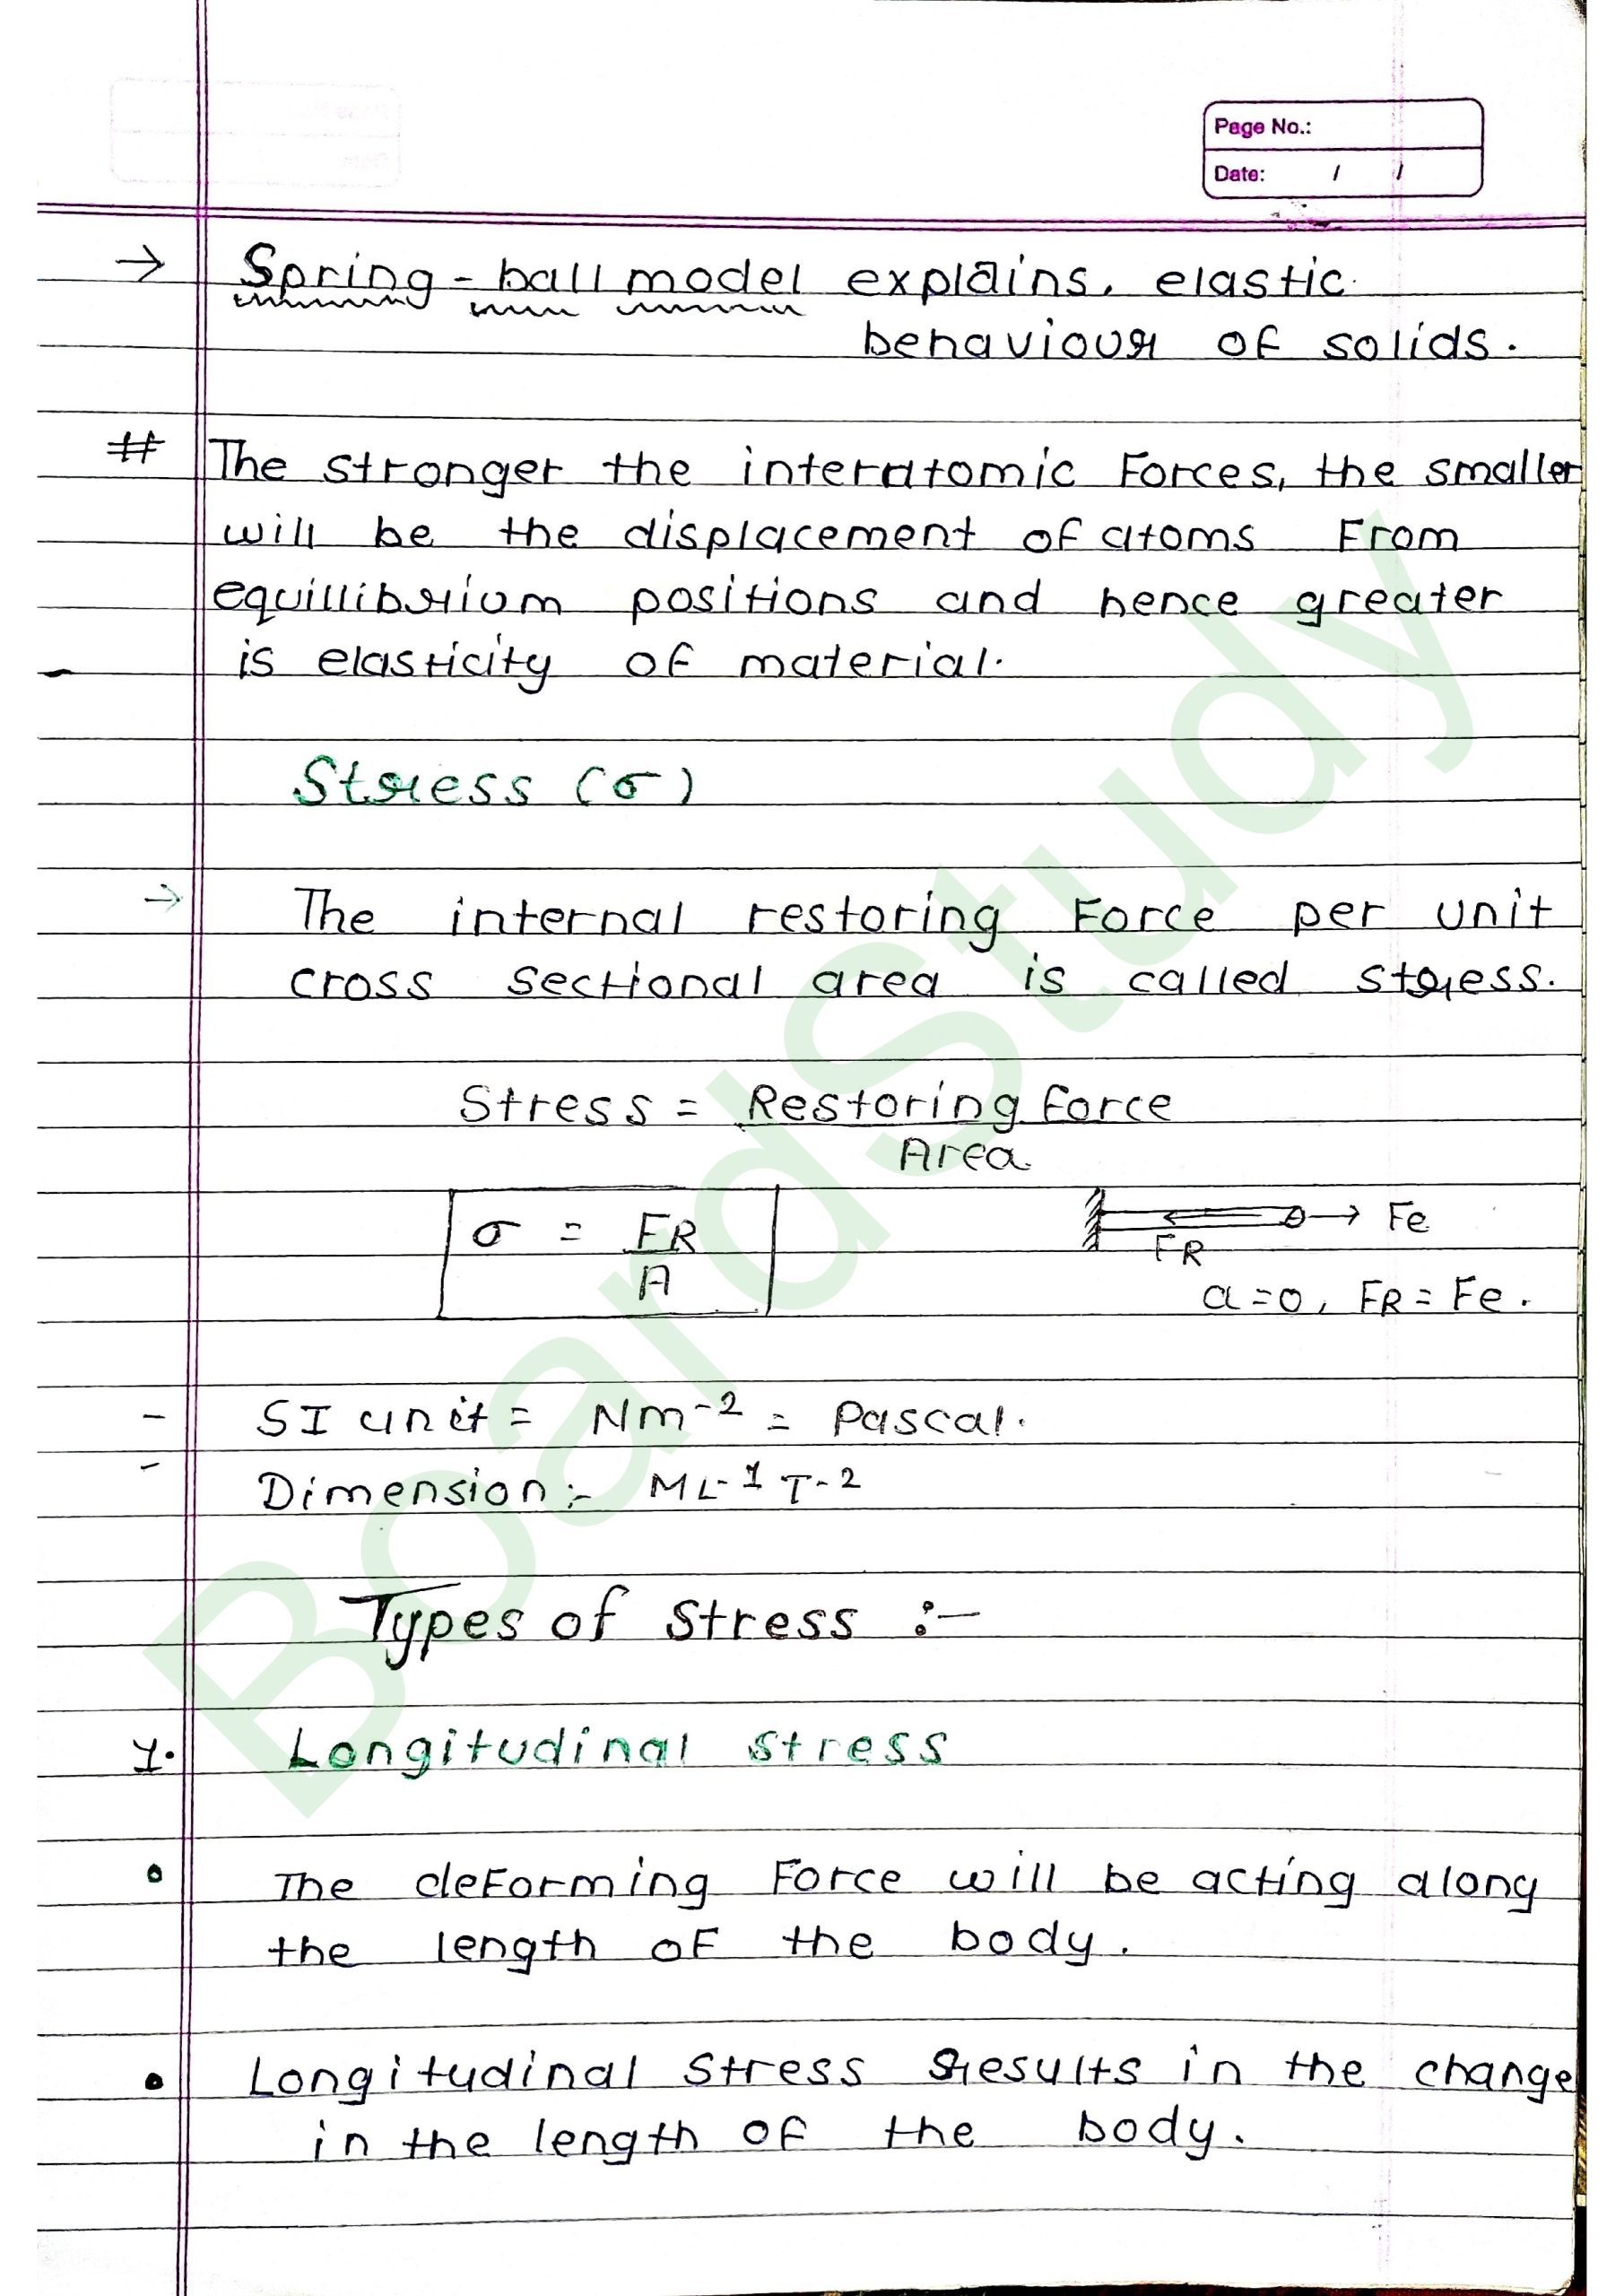 Page No.:
Date: / /
→ Spring-ball model explains, elastic
behaviour of solids.
# The stronger the interatomic Forces, the smaller
will be the displacement of atoms From
equillibrium positions and hence greater
- is elasticity of material.
Stress (σ)
→ The internal restoring Force per unit
cross sectional area is called stress.
Stress = Restoring force
Area
σ = FR
A
→ Fe
FR
a=0, FR = Fe.
- SI unit = Nm-2 = Pascal.
- Dimension :- ML-1 T-2
Types of Stress :-
1. Longitudinal stress
• The deforming Force will be acting along
the length of the body.
• Longitudinal stress results in the change
in the length of the body.
BoardStudy